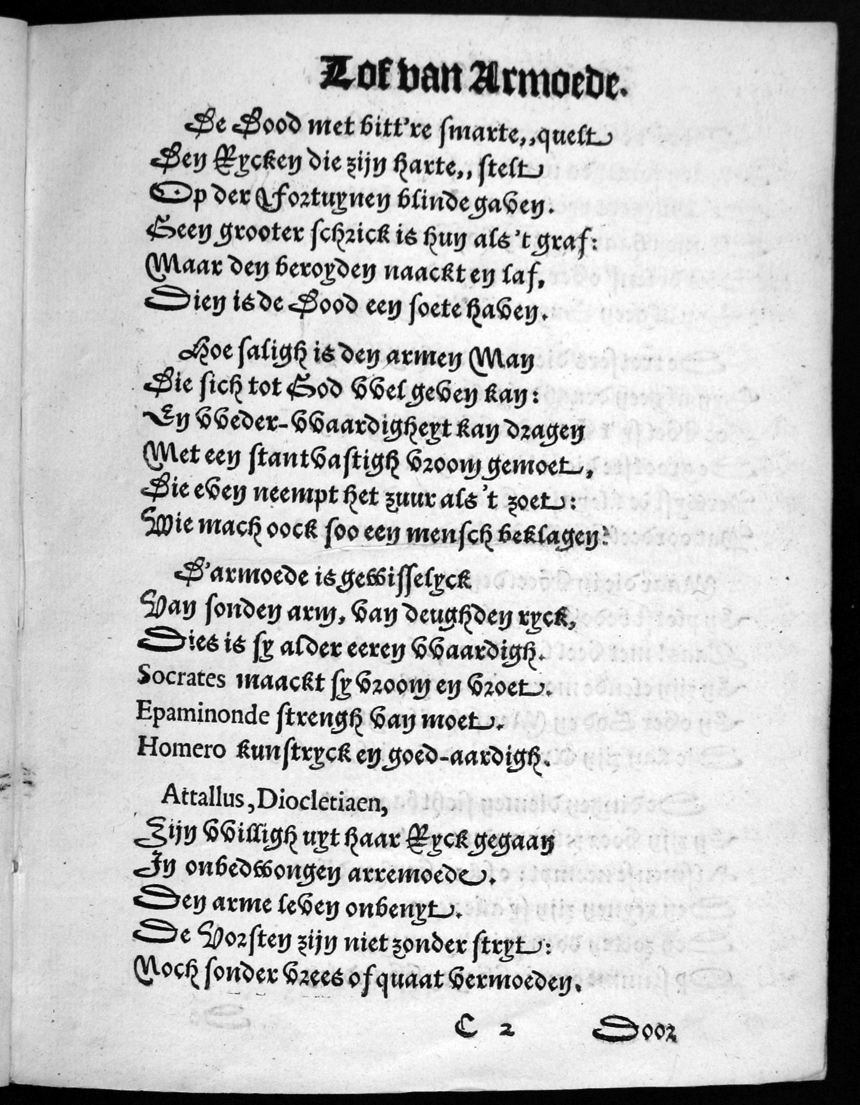 Lof van Armoede.
De Dood met bitt're smarte,, quelt
Den Rycken die zijn harte,, stelt
Op der Fortuynen blinde gaven.
Geen grooter schrick is hun als 't graf:
Maar den beroyden naackt en laf,
Dien is de Dood een soete haven.
Hoe saligh is den armen Man
Die sich tot God vvel geven kan:
En vveder-vvaardigheyt kan dragen
Met een stantvastigh vroom gemoet,
Die even neempt het zuur als 't zoet:
Wie mach oock soo een mensch beklagen?
D'armoede is gewisselyck
Van sonden arm, van deughden ryck,
Dies is sy alder eeren vvaardigh.
Socrates maackt sy vroom en vroet.
Epaminonde strengh van moet.
Homero kunstryck en goed-aardigh.
Attallus, Diocletiaen,
Zijn vvilligh uyt haar Ryck gegaan
In onbedwongen arremoede.
Den arme leven onbenyt.
De Vorsten zijn niet zonder stryt:
Noch sonder vrees of quaat vermoeden.
C 2
Door